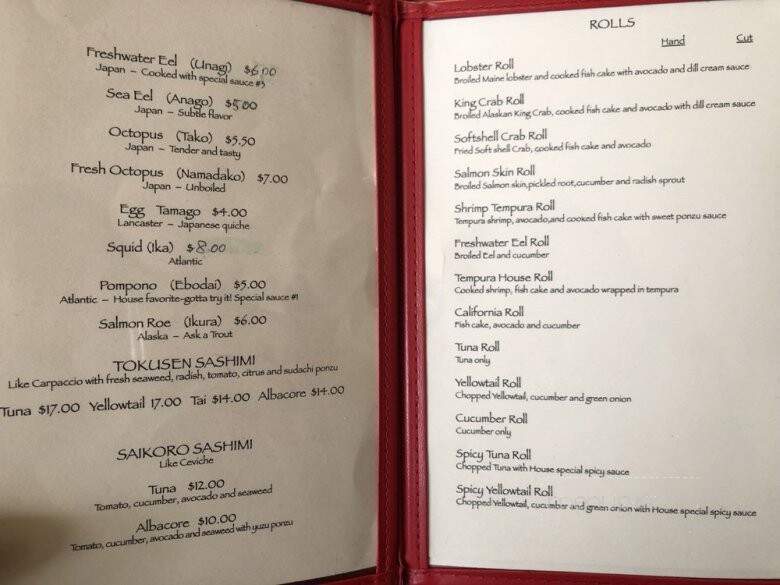 Freshwater Eel (Unagi) $6.00
Japan – Cooked with special sauce #3
Sea Eel (Anago) $5.00
Japan – Subtle flavor
Octopus (Tako) $5.50
Japan – Tender and tasty
Fresh Octopus (Namadako) $7.00
Japan – Unboiled
Egg Tamago $4.00
Lancaster – Japanese quiche
Squid (Ika) $8.00
Atlantic
Pompono (Ebodai) $5.00
Atlantic – House favorite-gotta try it! Special sauce #1
Salmon Roe (Ikura) $6.00
Alaska – Ask a Trout
TOKUSEN SASHIMI
Like Carpaccio with fresh seaweed, radish, tomato, citrus and sudachi ponzu
Tuna $17.00 Yellowtail 17.00 Tai $14.00 Albacore $14.00
SAIKORO SASHIMI
Like Ceviche
Tuna $12.00
Tomato, cucumber, avocado and seaweed
Albacore $10.00
Tomato, cucumber, avocado and seaweed with yuzu ponzu
ROLLS
Hand Cut
Lobster Roll
Broiled Maine lobster and cooked fish cake with avocado and dill cream sauce
King Crab Roll
Broiled Alaskan King Crab, cooked fish cake and avocado with dill cream sauce
Softshell Crab Roll
Fried Soft shell Crab, cooked fish cake and avocado
Salmon Skin Roll
Broiled Salmon skin,pickled root,cucumber and radish sprout
Shrimp Tempura Roll
Tempura shrimp, avocado,and cooked fish cake with sweet ponzu sauce
Freshwater Eel Roll
Broiled Eel and cucumber
Tempura House Roll
Cooked shrimp, fish cake and avocado wrapped in tempura
California Roll
Fish cake, avocado and cucumber
Tuna Roll
Tuna only
Yellowtail Roll
Chopped Yellowtail, cucumber and green onion
Cucumber Roll
Cucumber only
Spicy Tuna Roll
Chopped Tuna with House special spicy sauce
Spicy Yellowtail Roll
Chopped Yellowtail, cucumber and green onion with House special spicy sauce